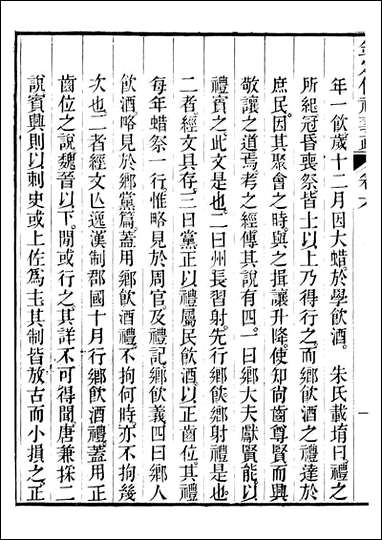 年一飲歲十二月因大蜡於學飲酒　朱氏載堉曰禮之
所紀冠昏喪祭皆士以上乃得行之而鄉飲酒之禮達於
庶民因其聚會之時與之揖讓升降使知尙齒尊賢而興
敬讓之道焉考之經傳其說有四一曰鄉大夫獻賢能以
禮賓之此文是也二曰州長習射先行鄉飲鄉射禮是也
二者經文具存三曰黨正以禮屬民飲酒以正齒位其禮
每年蜡祭一行惟略見於周官及禮記鄉飲義四曰鄉人
飲酒略見於鄉黨篇蓋用鄉飲酒禮不拘何時亦不拘幾
次也二者經文亾逸漢制郡國十月行鄉飲酒禮蓋用正
齒位之說魏晉以下閒或行之其詳不可得聞唐兼採二
說賓興則以刺史或上佐爲主其制皆放古而小損之正